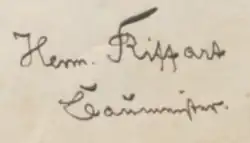 Herm. Rissart
Baumeister.